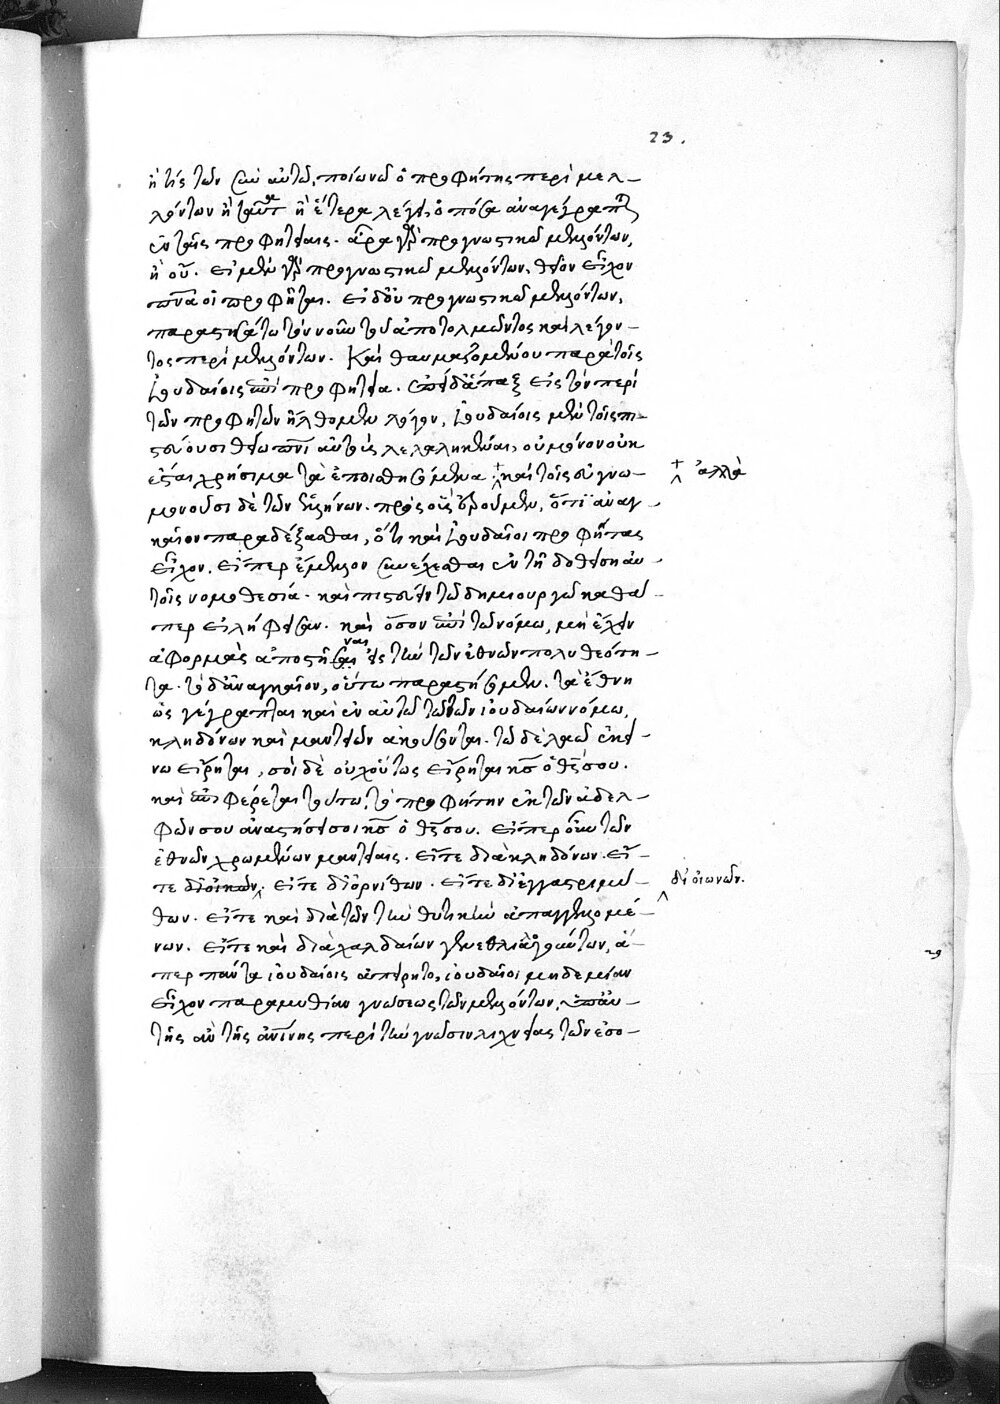 23.
ἢ τίς τῶν σὺν αὐτῶ. ποίων δ' ὁ προφήτης περὶ μελ-
λόντων ἢ ταῦτα ἢ ἕτερα λέγει, ὁπόσα ἀναγέγραπται
ἐν ταῖς προφητείαις. ἆρα γὰρ προγνωστικὰ μελλόντων,
ἢ οὔ. εἰ μὲν γὰρ προγνωστικὰ μελλόντων, θεῖον εἶχον
πνα οἱ προφῆται. εἰ δ' οὐ προγνωστικὰ μελλόντων,
παραστησάτω τὸν νοῦν τοῦ ἀποτολμῶντος καὶ λέγον-
τος περὶ μελλόντων. Καὶ θαυμαζομένου παρὰ τοῖς
ἰουδαίοις ἐπὶ προφητεία. ἐπεὶ δ' ἅπαξ εἰς τὸν περὶ
τῶν προφητῶν ἤλθομεν λόγον, ἰουδαίοις μὲν τοῖς πι-
στεύουσι θείω πνι αὐτοὺς λελαληκέναι, οὐ μόνον οὐκ
ἔσται χρήσιμα τὰ ἐποισθησόμενα καὶ τοῖς εὐγνω- ἀλλὰ
μονοῦσι δὲ τῶν ἑλλήνων. πρὸς οὓς ἐροῦμεν, ὅτι ἀναγ-
καῖον παραδέξασθαι, ὅτι καὶ ἰουδαῖοι προφήτας
εἶχον. εἴπερ ἔμελλον συνέχεσθαι ἐν τῇ δοθείση αὐ-
τοῖς νομοθεσία. καὶ πιστεύειν τῶ δημιουργῶ καθά-
περ εἰλήφεσαν. καὶ ὅσον ἐπὶ τῶ νόμω, μὴ ἔχειν
ἀφορμὰς ἀποστῆναι εἰς τὴν τῶν ἐθνῶν πολυθεότη-
τα. τὸ δ' ἀναγκαῖον, οὕτω παραστήσομεν. τὰ ἔθνη
ὡς γέγραπται καὶ ἐν αὐτῶ τῶ τῶν ἰουδαίων νόμω,
κληδόνων καὶ μαντειῶν ἀκούσονται. τῶ δὲ λαῶ ἐκεί-
νω εἴρηται, σοὶ δὲ οὐχ οὕτως εἴρηται κς ὁ θς σου.
καὶ ἐπιφέρεται τούτω, τὸ προφήτην ἐκ τῶν ἀδελ-
φῶν σου ἀναστήσει σοι κς ὁ θς σου. εἴπερ οὖν τῶν
ἐθνῶν χρωμένων μαντείαις. εἴτε διὰ κληδόνων. εἴ-
τε δι' οἰκιῶν. εἴτε δι' ὀρνίθων. εἴτε δι' ἐγγαστριμύ- δι' οἰωνῶν.
θων. εἴτε καὶ διὰ τῶν τὴν θυτικὴν ἐπαγγελλομέ-
νων. εἴτε καὶ διὰ χαλδαίων γενεθλιαλογούντων, ἅ-
περ πάντα ἰουδαίοις ἀπείρητο, ἰουδαῖοι μηδεμίαν
εἶχον παραμυθίαν γνώσεως τῶν μελλόντων, ὑπ' αὐ-
τῆς ἂν τῆς ἀνίνης περὶ τὴν γνῶσιν λιχνείας τῶν ἐσο-